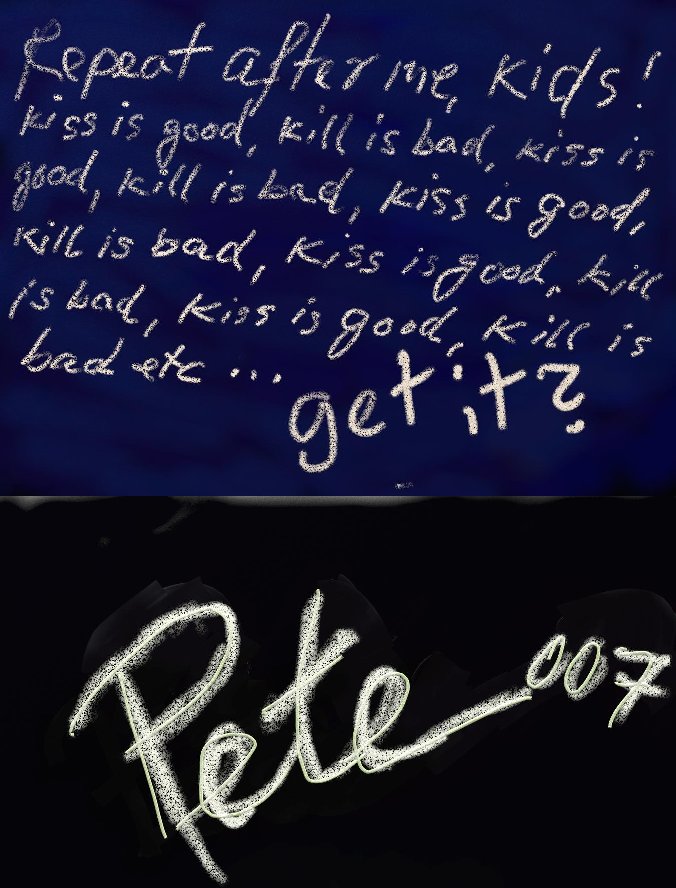 Repeat after me, kids!
kiss is good, kill is bad, kiss is
good, kill is bad, kiss is good,
kill is bad, kiss is good, kill
is bad, kiss is good, kill is
bad etc ...
get it?
Pete 007